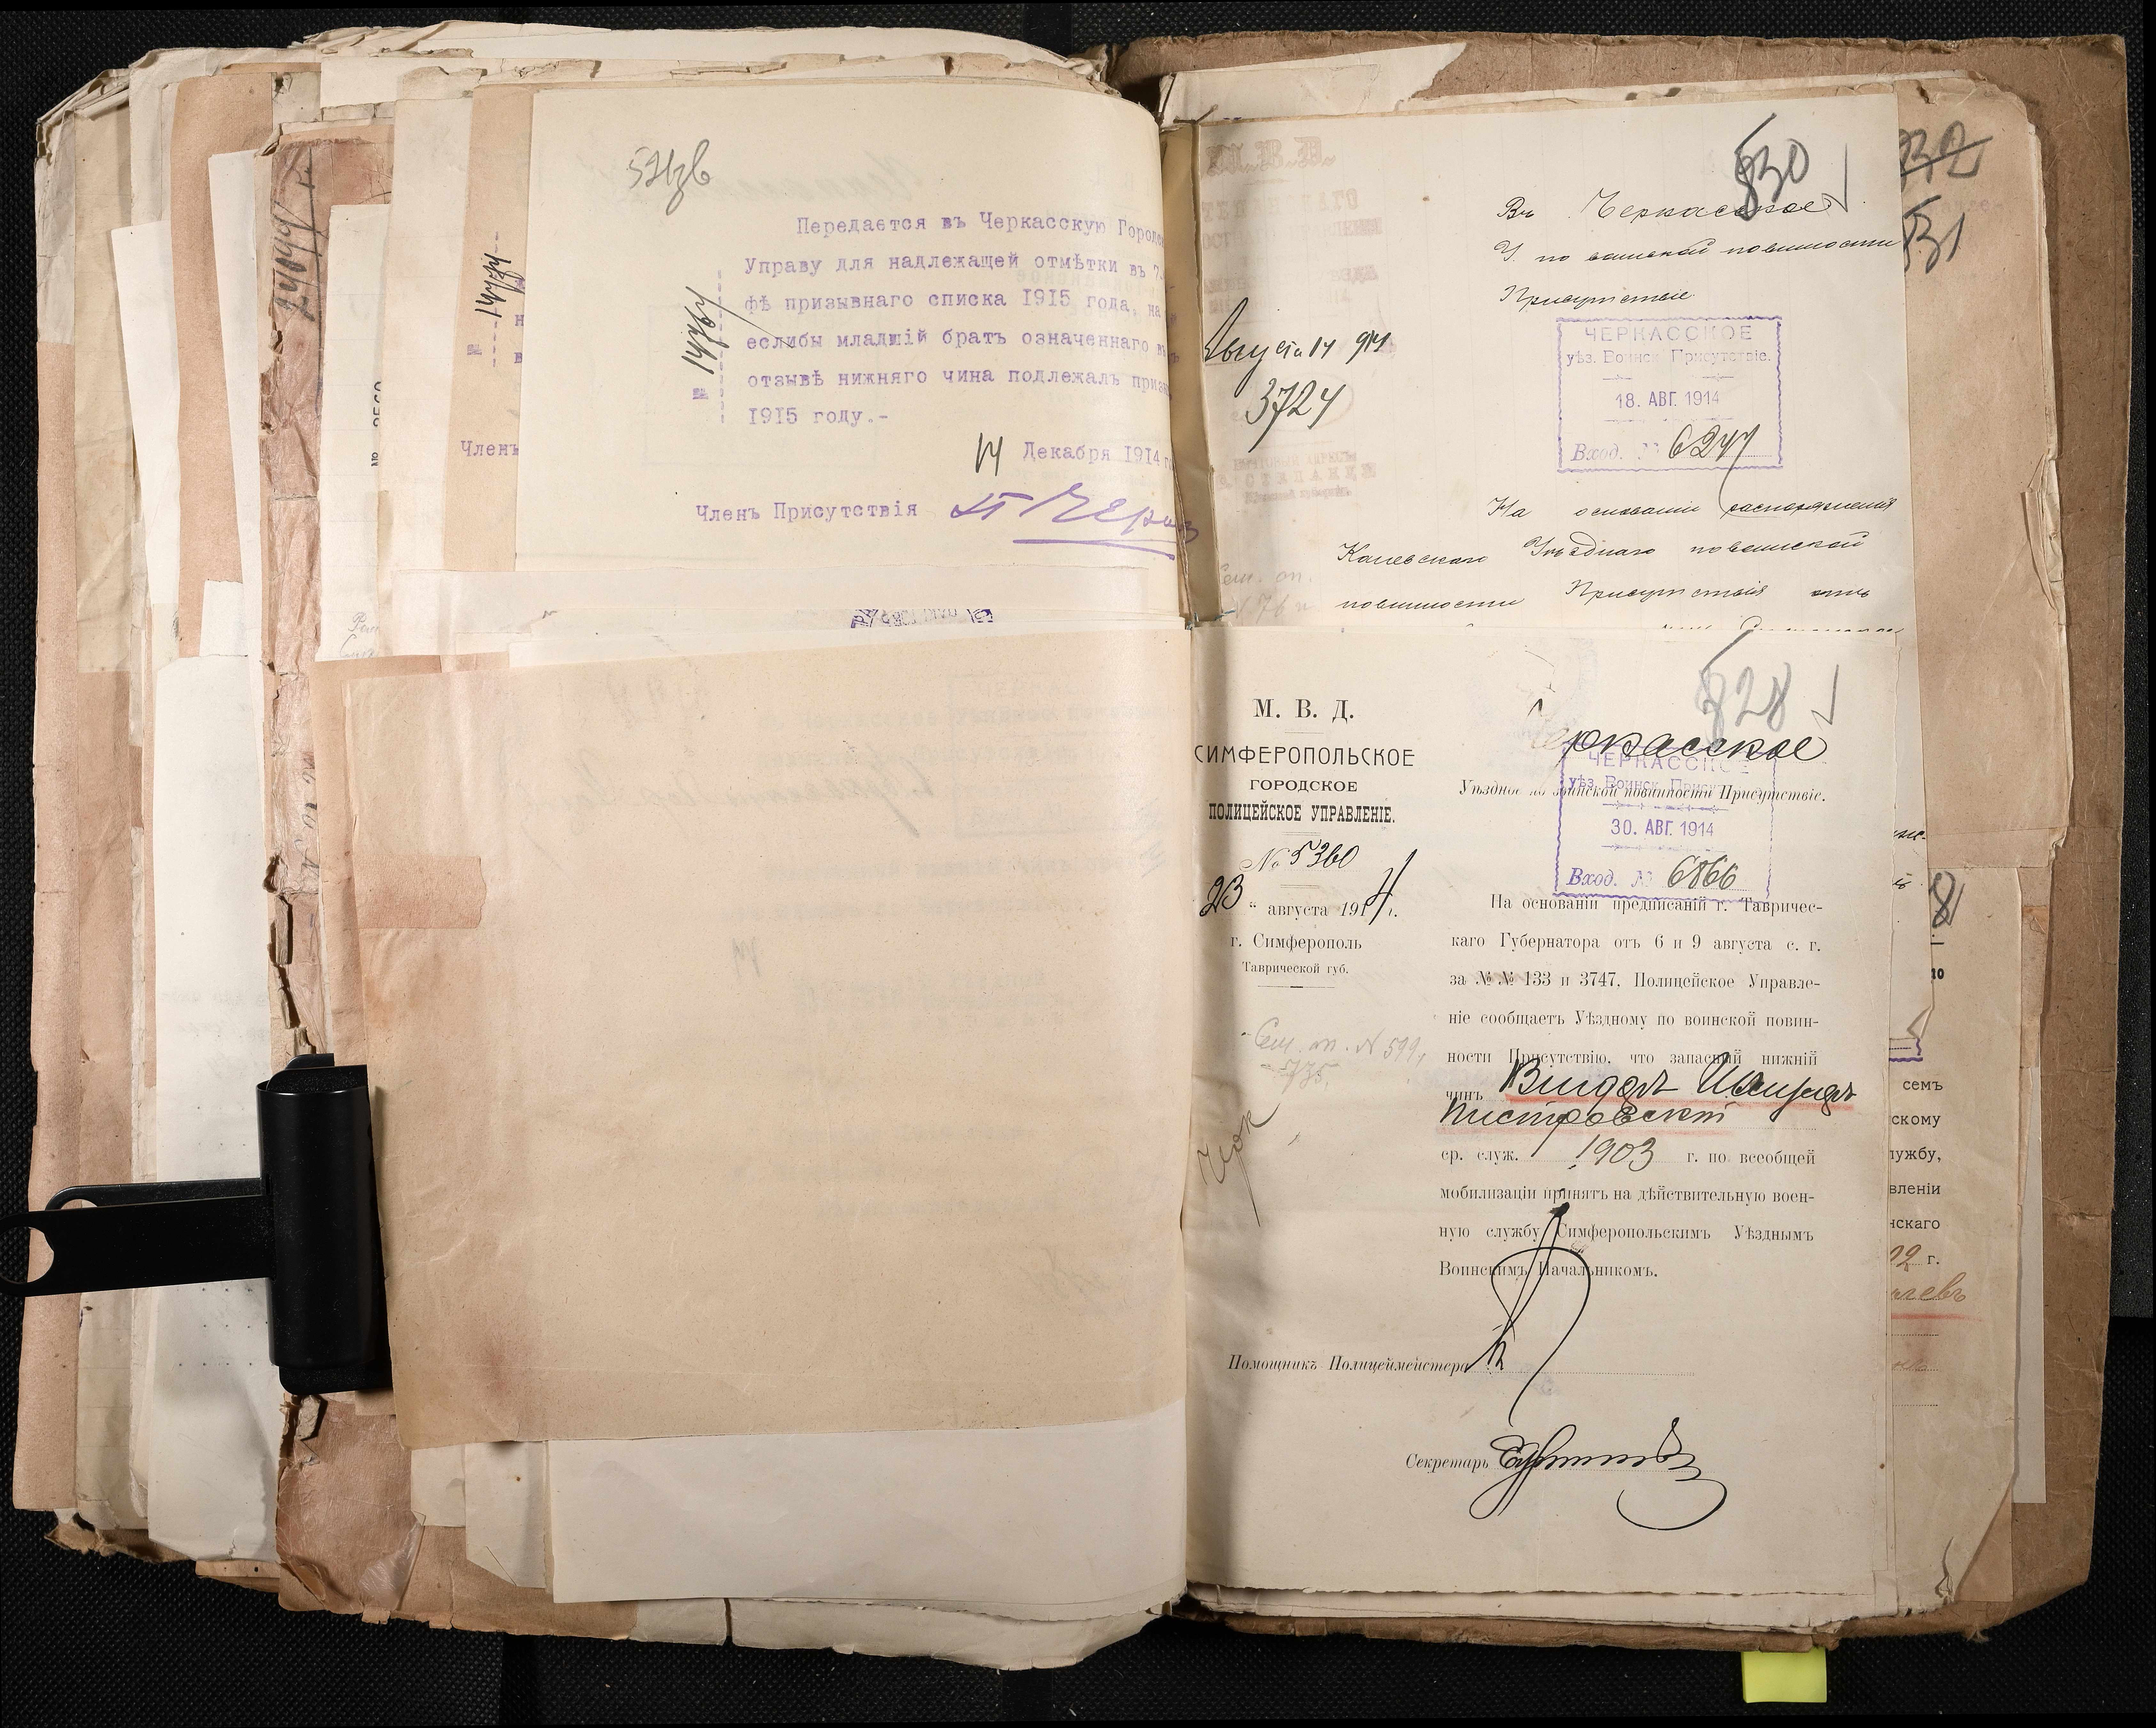 521зв
Передается въ Черкасскую Городс
Управу для надлежащей отмѣтки въ 7.
фѣ призывнаго списка 1915 года, на
еслибы младшій братъ означеннаго въ
отзывѣ нижняго чина подлежалъ призы
1915 году.-
№ 14767
14 Декабря 1914 г
Членъ Присутствія
№ 14777
Членъ
24044
830
Въ Черкасское
У. по воинской повинности
Присутствіе
Августа 14 914
3724
ЧЕРКАССКОЕ
уѣз. Воинск Присутствіе.
18. АВГ. 1914
Вход. № 6247
На основаніи распоряженія
Каневскаго Уѣзднаго по воинской
повинности Присутствія отъ
Сем. оп.
N 76
832
831
828
М. В. Д.
СИМФЕРОПОЛЬСКОЕ
ГОРОДСКОЕ
ПОЛИЦЕЙСКОЕ УПРАВЛЕНІЕ.
№ 5360
23 " августа 1914 г.
г. Симферополь
Таврической губ.
Сем. оп. N 599,
735.
Черкасское
Уѣздное по воинской повинности Присутствіе.
ЧЕРКАССКОЕ
уѣз. Воинск Присут
30. АВГ. 1914
Вход. № 6866
На основаніи предписаній г. Тавричес-
каго Губернатора отъ 6 и 9 августа с. г.
за №№ 133 и 3747, Полицейское Управле-
ніе сообщаетъ Уѣздному по воинской повин-
ности Присутствію, что запасный нижній
чинъ
ср. служ. 1903 г. по всеобщей
мобилизаціи принятъ на дѣйствительную воен-
ную службу Симферопольскимъ Уѣзднымъ
Воинскимъ Начальникомъ.
Помощникъ Полицеймейстера
Секретарь
семъ
скому
лужбу,
вленіи
нскаго
г.